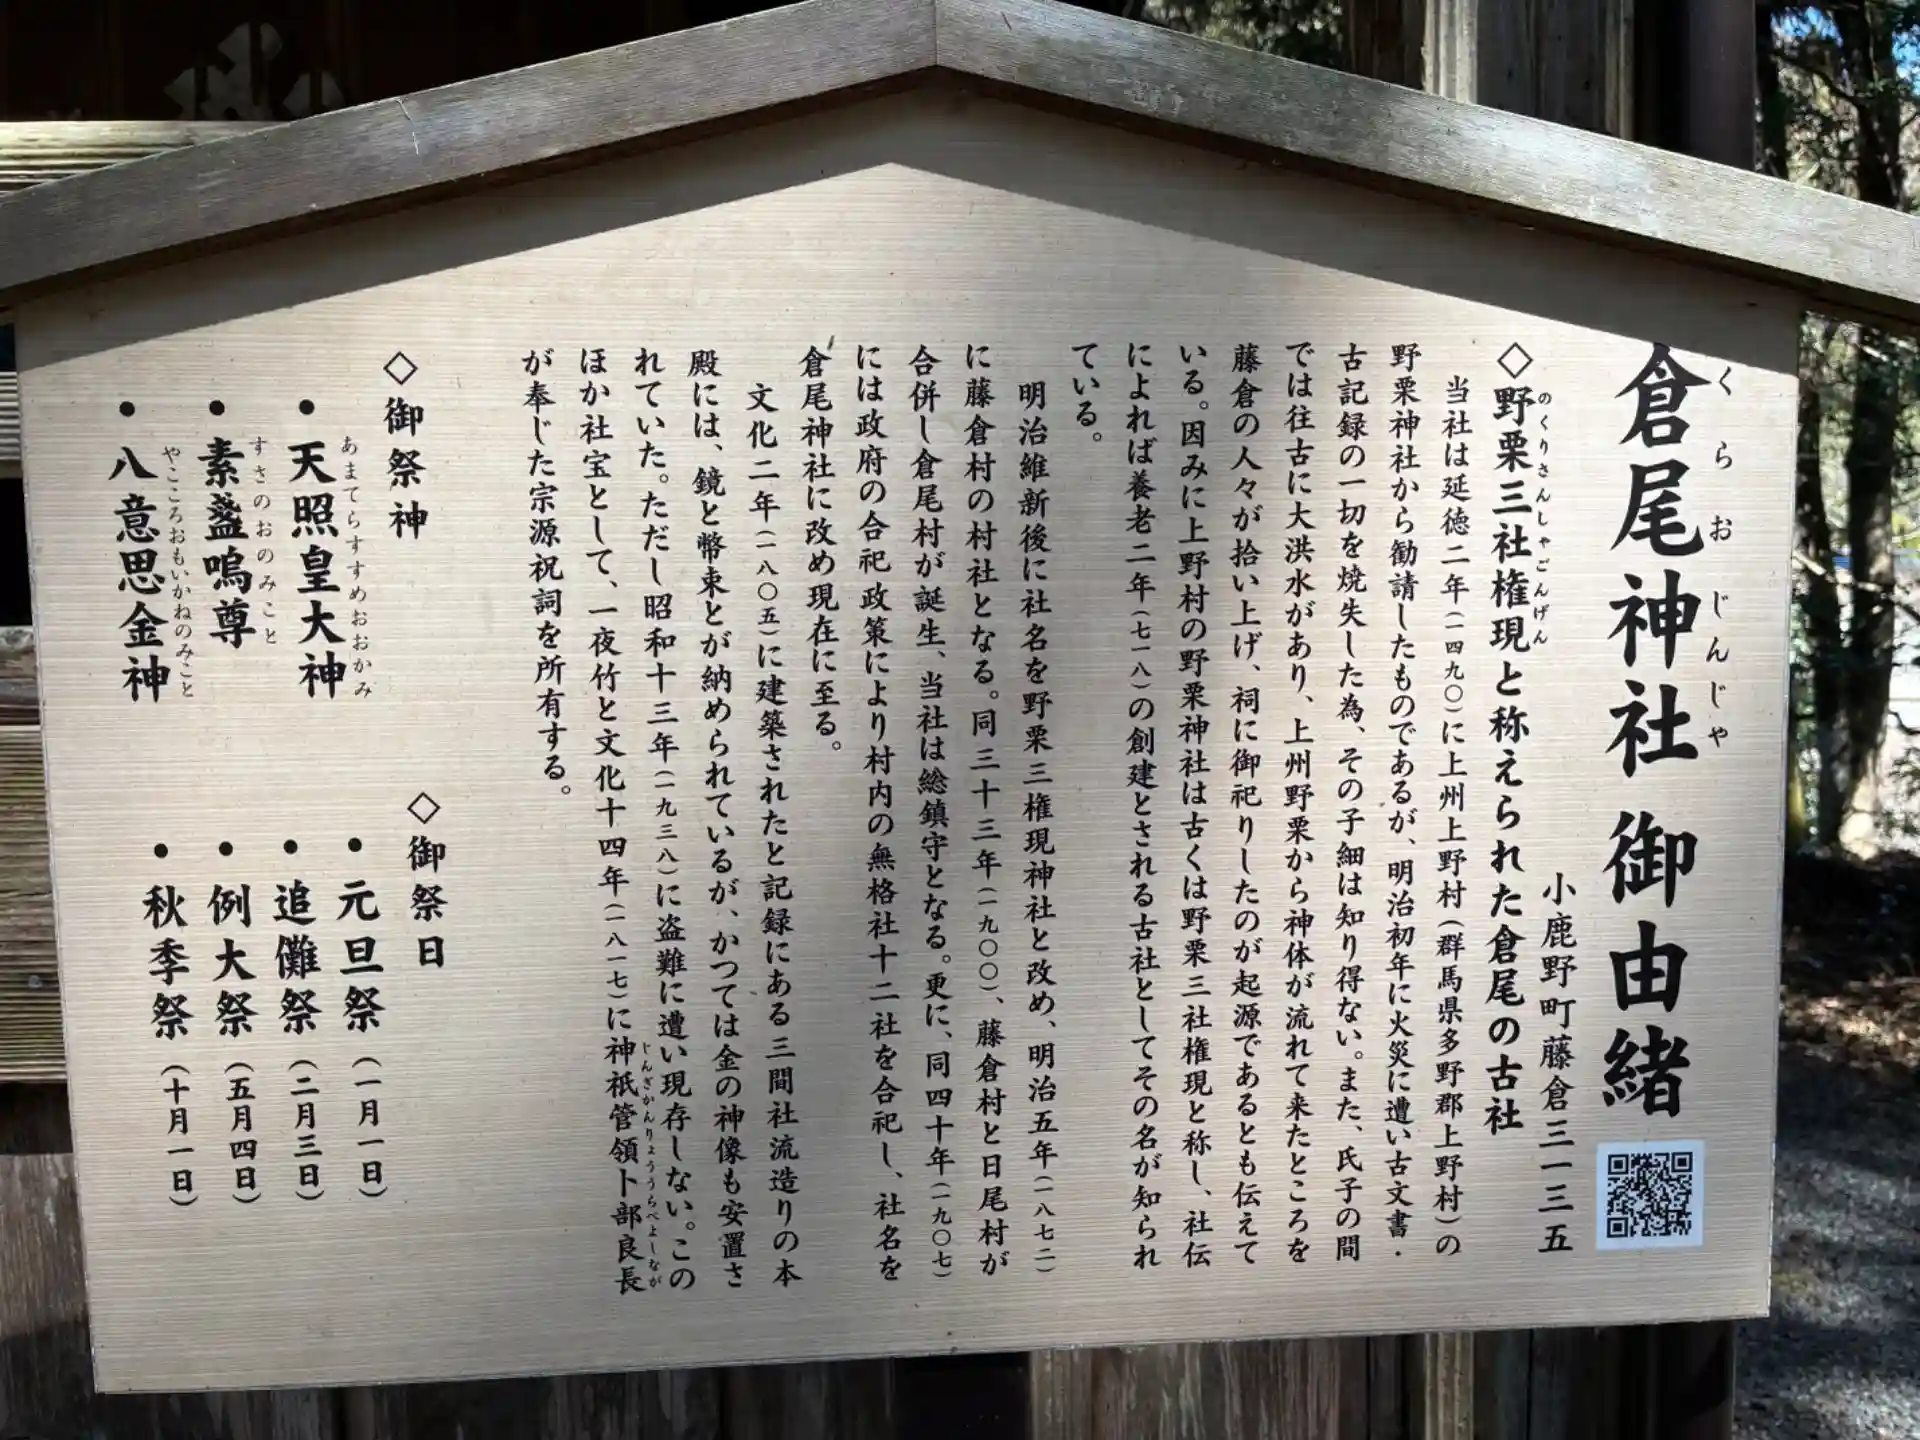 倉尾神社 御由緒
くらおじんじゃ
小鹿野町藤倉三一三五
◇野栗三社権現と称えられた倉尾の古社
のくりさんしゃごんげん
当社は延徳二年(一四九〇)に上州上野村(群馬県多野郡上野村)の
野栗神社から勧請したものであるが、明治初年に火災に遭い古文書・
古記録の一切を焼失した為、その子細は知り得ない。また、氏子の間
では往古に大洪水があり、上州野栗から神体が流れて来たところを
藤倉の人々が拾い上げ、祠に御祀りしたのが起源であるとも伝えて
いる。因みに上野村の野栗神社は古くは野栗三社権現と称し、社伝
によれば養老二年(七一八)の創建とされる古社としてその名が知られ
ている。
明治維新後に社名を野栗三権現神社と改め、明治五年(一八七二)
に藤倉村の村社となる。同三十三年(一九〇〇)、藤倉村と日尾村が
合併し倉尾村が誕生、当社は総鎮守となる。更に、同四十年(一九〇七)
には政府の合祀政策により村内の無格社十二社を合祀し、社名を
倉尾神社に改め現在に至る。
文化二年(一八〇五)に建築されたと記録にある三間社流造りの本
殿には、鏡と幣束とが納められているが、かつては金の神像も安置さ
れていた。ただし昭和十三年(一九三八)に盗難に遭い現存しない。この
ほか社宝として、一夜竹と文化十四年(一八一七)に神祇管領卜部良長
じんぎかんりょううらべよしなが
が奉じた宗源祝詞を所有する。
◇御祭神
● 天照皇大神
あまてらすすめおおかみ
● 素盞嗚尊
すさのおのみこと
● 八意思金神
やこころおもいかねのみこと
◇御祭日
● 元旦祭(一月一日)
● 追儺祭(二月三日)
● 例大祭(五月四日)
● 秋季祭(十月一日)